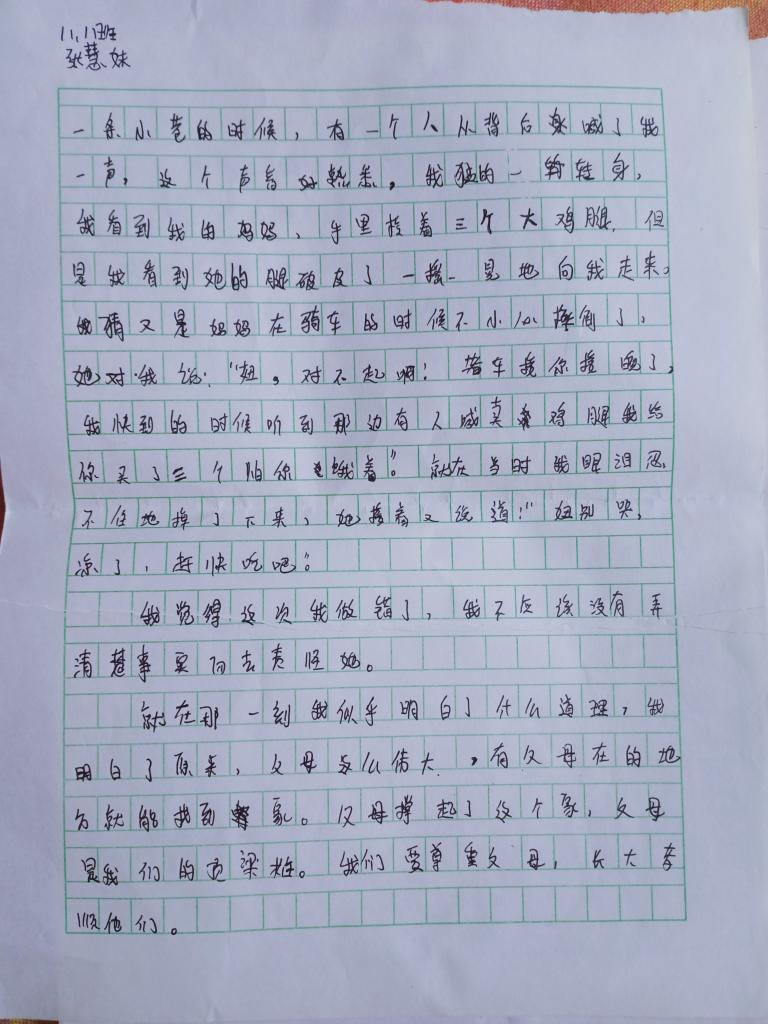 11.11班
张慧妹
一条小巷的时候，有一个人从背后喊了我
一声，这个声音好熟悉，我猛的一转身，
我看到我的妈妈，手里拎着三个大鸡腿，但
是我看到她的腿破皮了一摇一晃地向我走来，
我猜又是妈妈在骑车的时候不小心摔倒了，
她对我说："妞，对不起啊！着车接你接晚了，
我快到的时候听到那边有人喊卖鸡腿我给
你买了三个怕你饿着"。就在当时我眼泪忍
不住地掉了下来，她接着又说道："妞别哭，
凉了，赶快吃吧"。
我觉得这次我做错了，我不应该没有弄
清楚事实而去责怪她。
就在那一刻我似乎明白了什么道理，我
明白了原来，父母多么伟大，有父母在的地
方就能找到家。父母撑起了这个家，父母
是我们的顶梁柱。我们要尊重父母，长大孝
顺他们。